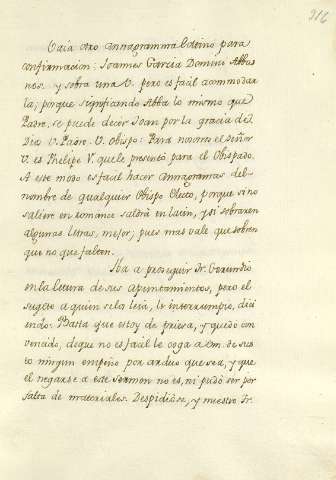 316
Vaia otro annagramma Latino para
confirmacion: Ioannes Garcia Domini Abbas
nos. y sobra una V. pero es facil acommodar
la; porque significando Abba lo mismo que
Padre, se puede decir Joan por la gracia del
Dia V. Padre. V. Obispo: Para novres el Señor
V. es Phelipe V. que le presentó para el Obispado.
A este modo es facil hacer Annagramas del
nombre de qualquier Obispo Electo, porque si no
saliere en romance saldrá en latin, y si sobraren
algunas letras, mejor; pues mas vale que sobren
que no que falten.
Iba a proseguir Fr. Gerundio
en la lectura de sus apuntamientos, pero el
sugeto a quien se los leia, le interrumpio, dici
endo: Basta que estoy de priesa, y quedo con
vencido, de que no es facil le coga a Vm. de sus
to ningun empeño por arduo que sea, y que
el negarse a este sermon no es, ni pudo ser por
falta de materiales. Despidiòse, y nuestro Fr.